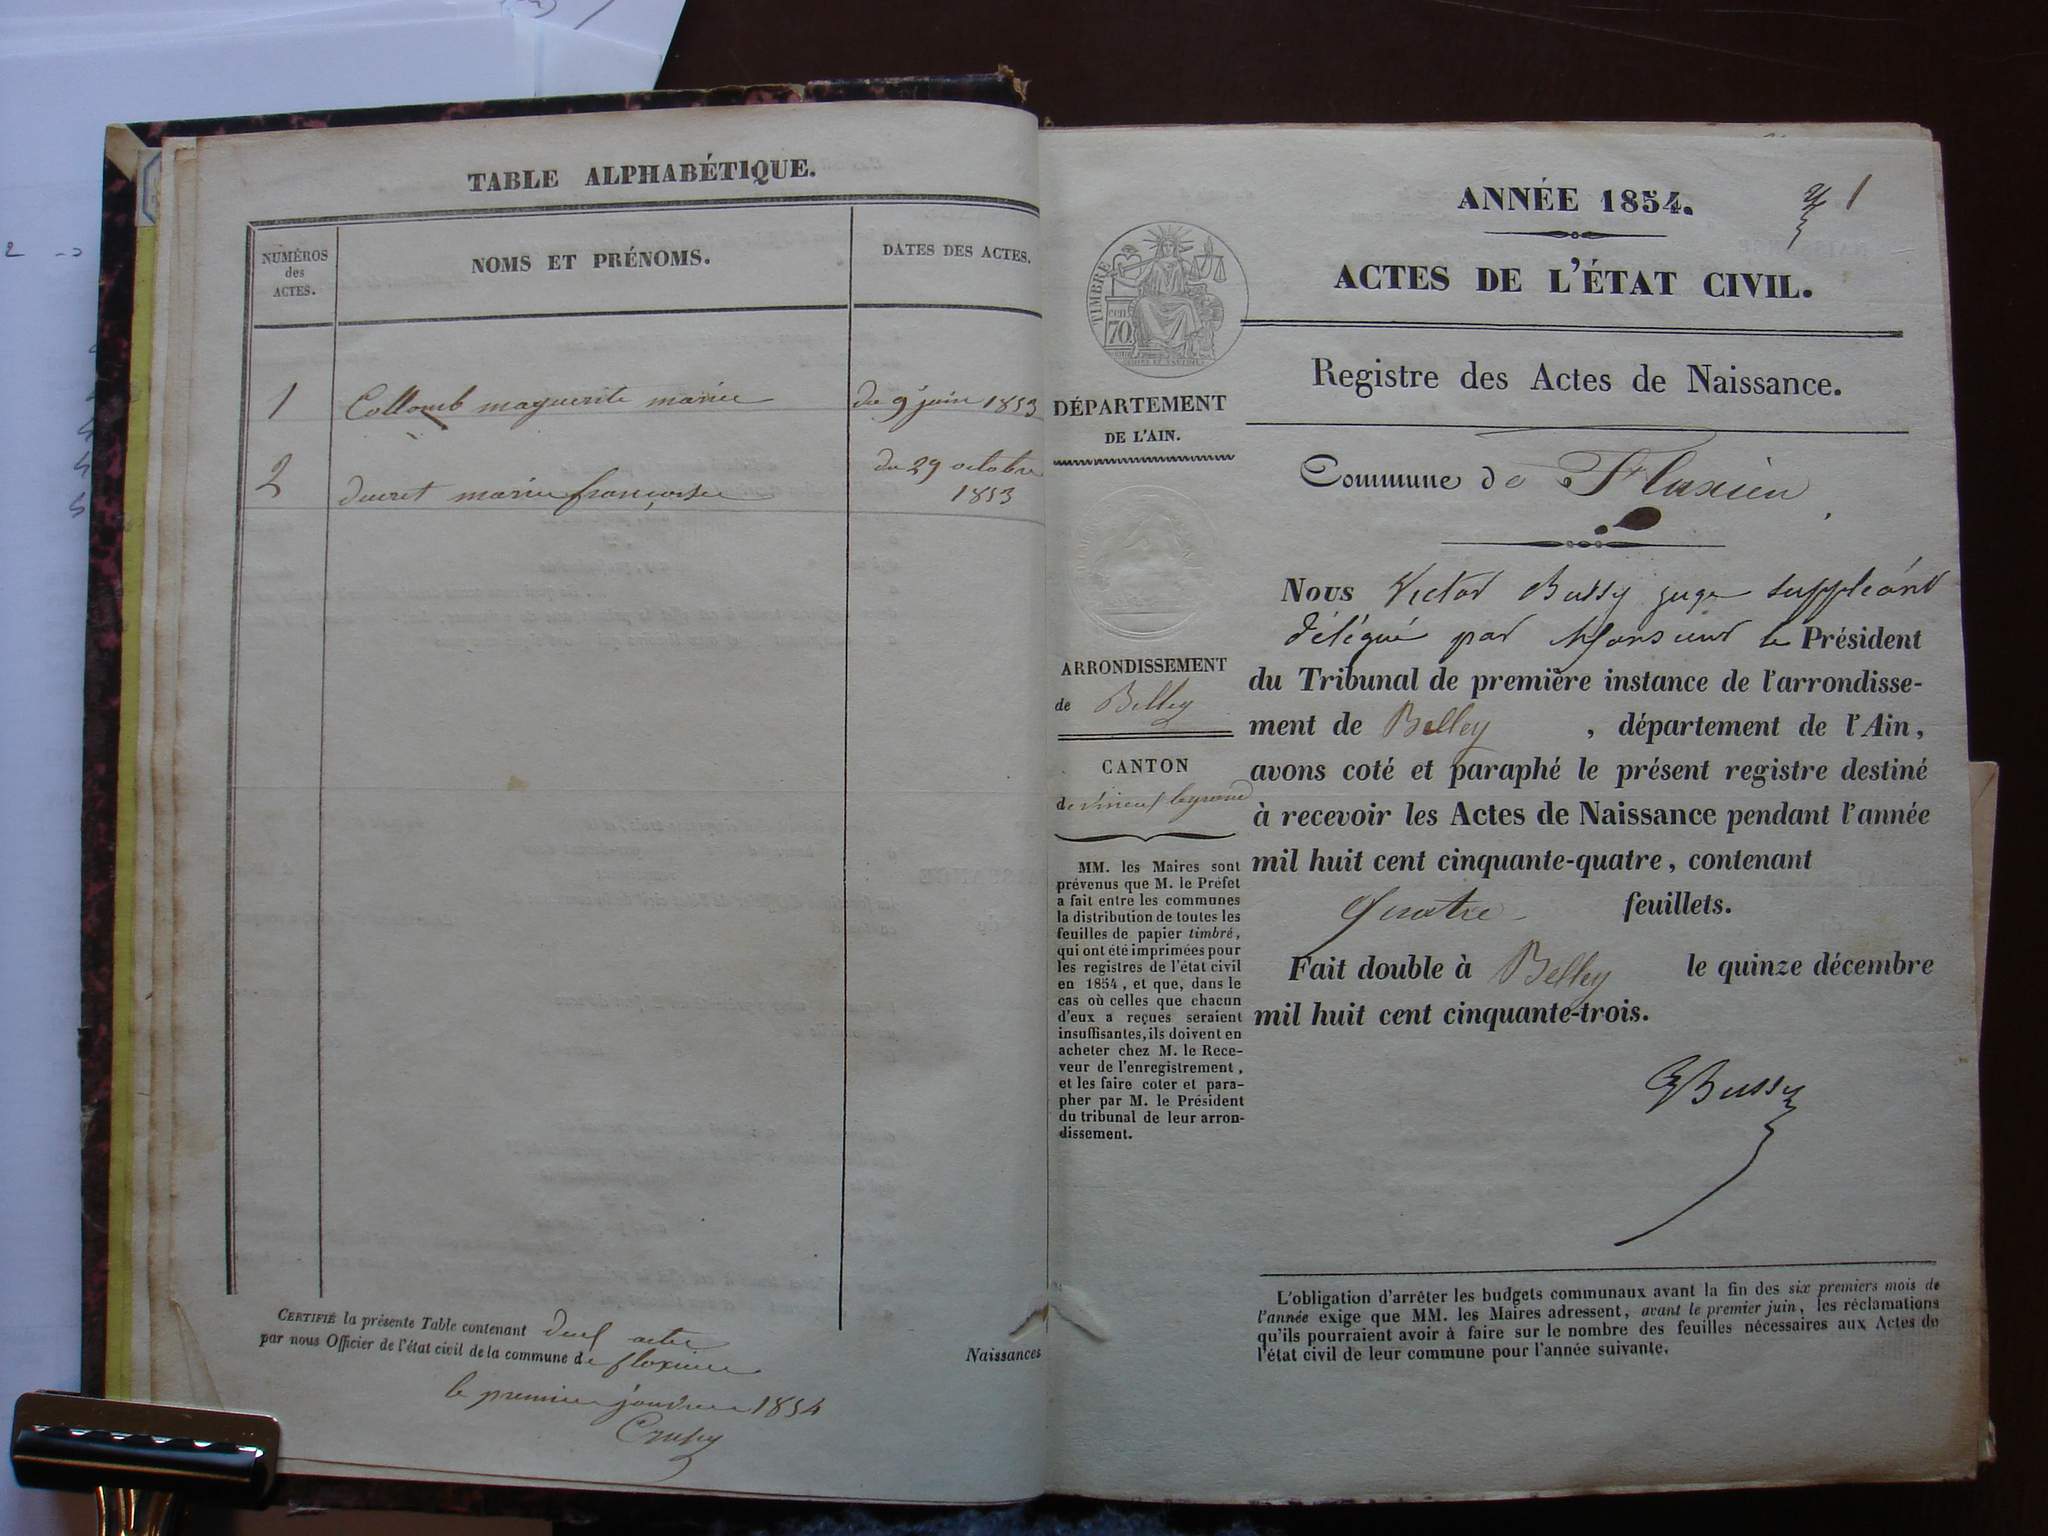 TABLE ALPHABÉTIQUE.
NUMÉROS
des
ACTES.
NOMS ET PRÉNOMS.
DATES DES ACTES.
1 Collomb marguerite marie du 9 juin 1853
2 ducret marie françoise du 29 octobre
1853
CERTIFIÉ la présente Table contenant deux actes
par nous Officier de l'état civil de la commune de flaxieu
le premier janvier 1854
Naissances
1
ANNÉE 1854.
ACTES DE L'ÉTAT CIVIL.
Registre des Actes de Naissance.
TIMBRE
70
DÉPARTEMENT
DE L'AIN.
ARRONDISSEMENT
de Belley
CANTON
de virieu le grand
MM. les Maires sont
prévenus que M. le Préfet
a fait entre les communes
la distribution de toutes les
feuilles de papier timbré,
qui ont été imprimées pour
les registres de l'état civil
en 1854, et que, dans le
cas où celles que chacun
d'eux a reçues seraient
insuffisantes, ils doivent en
acheter chez M. le Rece-
veur de l'enregistrement,
et les faire coter et para-
pher par M. le Président
du tribunal de leur arron-
dissement.
Commune de Flaxieu
Nous Victor Bussy juge suppléant
délégué par Monsieur le Président
du Tribunal de première instance de l'arrondisse-
ment de Belley, département de l'Ain,
avons coté et paraphé le présent registre destiné
à recevoir les Actes de Naissance pendant l'année
mil huit cent cinquante-quatre, contenant
quatre feuillets.
Fait double à Belley le quinze décembre
mil huit cent cinquante-trois.
Bussy
L'obligation d'arrêter les budgets communaux avant la fin des six premiers mois de
l'année exige que MM. les Maires adressent, avant le premier juin, les réclamations
qu'ils pourraient avoir à faire sur le nombre des feuilles nécessaires aux Actes de
l'état civil de leur commune pour l'année suivante.